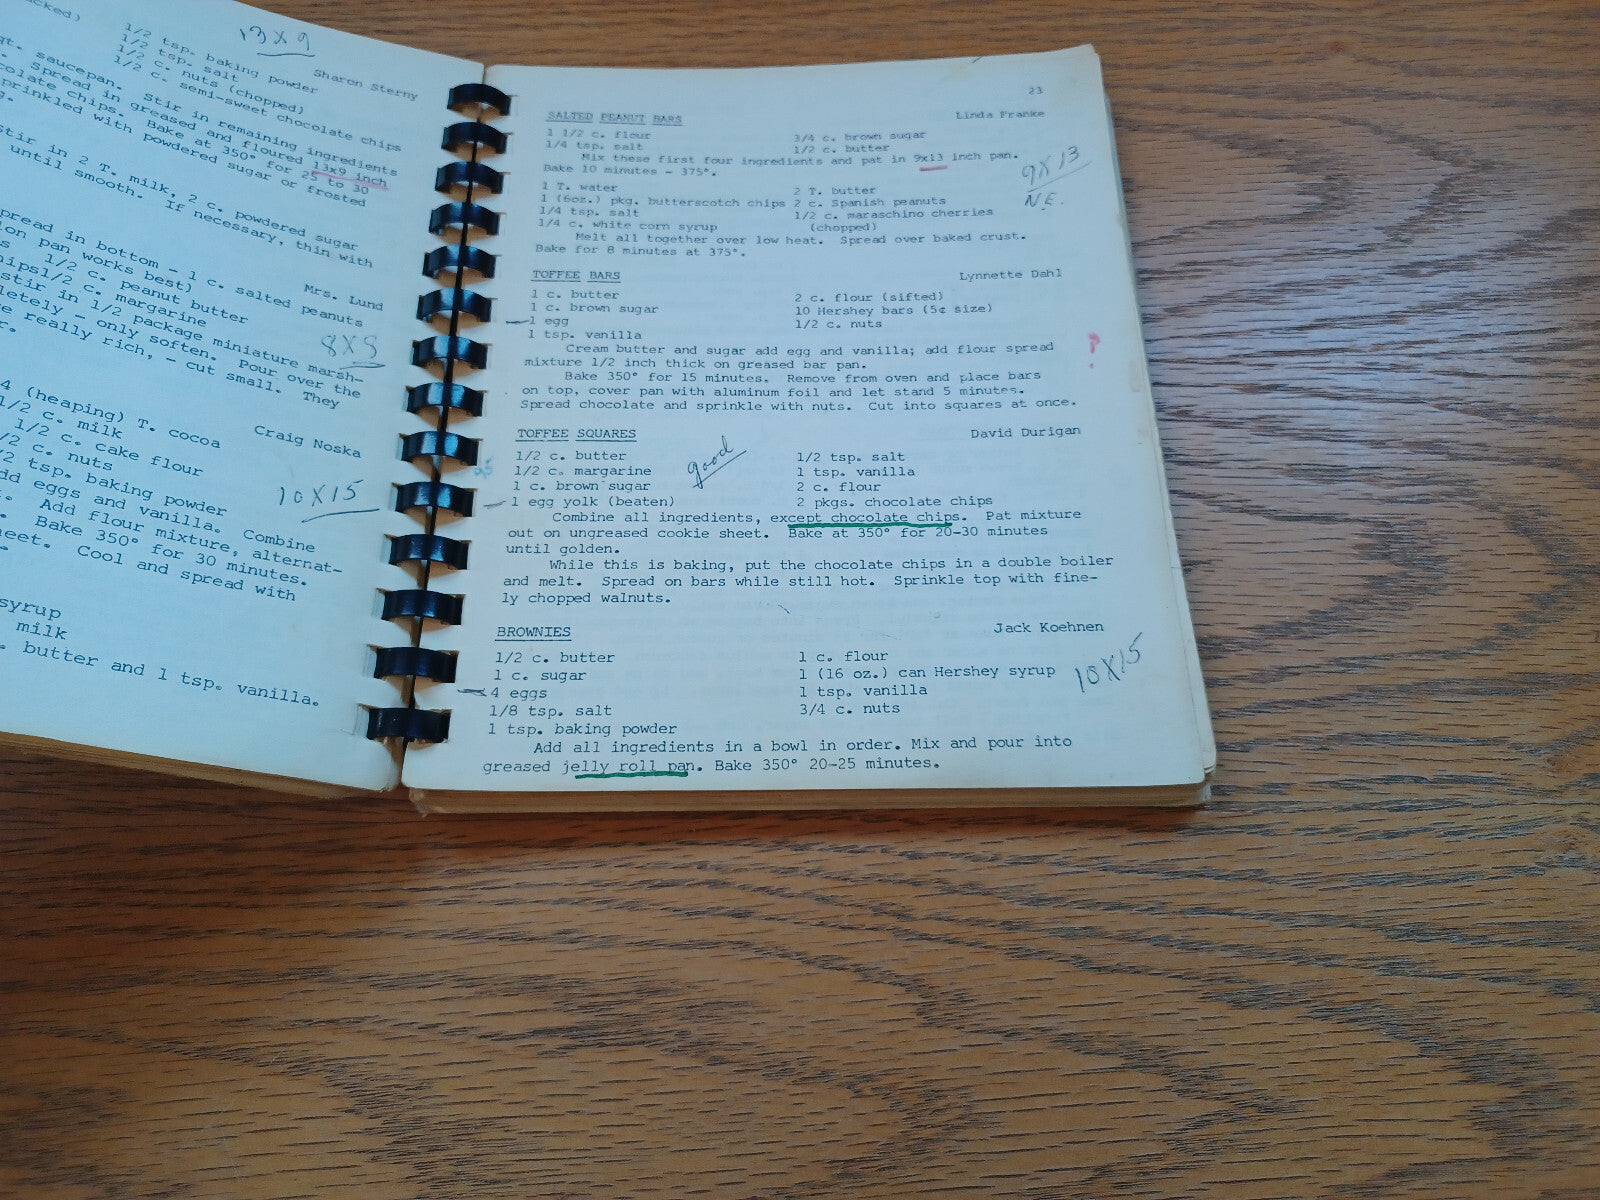 13 X 9
1/2 tsp. baking powder
1/2 tsp. salt
1/2 c. nuts (chopped)
1/2 c. semi-sweet chocolate chips
Sharon Sterny
qt. saucepan. Stir in remaining ingredients
Spread in greased and floured 13x9 inch
colate chips. Bake at 350° for 25 to 30
prinkled with powdered sugar or frosted
g.
stir in 2 T. milk, 2 c. powdered sugar
until smooth. If necessary, thin with
Mrs. Lund
pread in bottom - 1 c. salted peanuts
lon pan works best)
1/2 c. peanut butter
hips 1/2 c. margarine
stir in 1/2 package miniature marsh-
letely - only soften. Pour over the
e really rich, - cut small. They
r.
8X8
Craig Noska
4 (heaping) T. cocoa
1/2 c. milk
1/2 c. cake flour
/2 c. nuts
/2 tsp. baking powder
10 X 15
dd eggs and vanilla. Combine
. Add flour mixture, alternat-
. Bake 350° for 30 minutes.
heet. Cool and spread with
syrup
milk
. butter and 1 tsp. vanilla.
23
SALTED PEANUT BARS Linda Franke
1 1/2 c. flour 3/4 c. brown sugar
1/4 tsp. salt 1/2 c. butter
Mix these first four ingredients and pat in 9x13 inch pan.
Bake 10 minutes - 375°.
9X13
N.E.
1 T. water 2 T. butter
1 (6oz.) pkg. butterscotch chips 2 c. Spanish peanuts
1/4 tsp. salt 1/2 c. maraschino cherries
1/4 c. white corn syrup (chopped)
Melt all together over low heat. Spread over baked crust.
Bake for 8 minutes at 375°.
TOFFEE BARS Lynnette Dahl
1 c. butter 2 c. flour (sifted)
1 c. brown sugar 10 Hershey bars (5¢ size)
1 egg 1/2 c. nuts
1 tsp. vanilla
Cream butter and sugar add egg and vanilla; add flour spread
mixture 1/2 inch thick on greased bar pan.
?
Bake 350° for 15 minutes. Remove from oven and place bars
on top, cover pan with aluminum foil and let stand 5 minutes.
Spread chocolate and sprinkle with nuts. Cut into squares at once.
TOFFEE SQUARES David Durigan
1/2 c. butter 1/2 tsp. salt
1/2 c. margarine 1 tsp. vanilla
1 c. brown sugar 2 c. flour
1 egg yolk (beaten) 2 pkgs. chocolate chips
good
Combine all ingredients, except chocolate chips. Pat mixture
out on ungreased cookie sheet. Bake at 350° for 20-30 minutes
until golden.
While this is baking, put the chocolate chips in a double boiler
and melt. Spread on bars while still hot. Sprinkle top with fine-
ly chopped walnuts.
BROWNIES Jack Koehnen
1/2 c. butter 1 c. flour
1 c. sugar 1 (16 oz.) can Hershey syrup
4 eggs 1 tsp. vanilla
1/8 tsp. salt 3/4 c. nuts
1 tsp. baking powder
10X15
Add all ingredients in a bowl in order. Mix and pour into
greased jelly roll pan. Bake 350° 20-25 minutes.